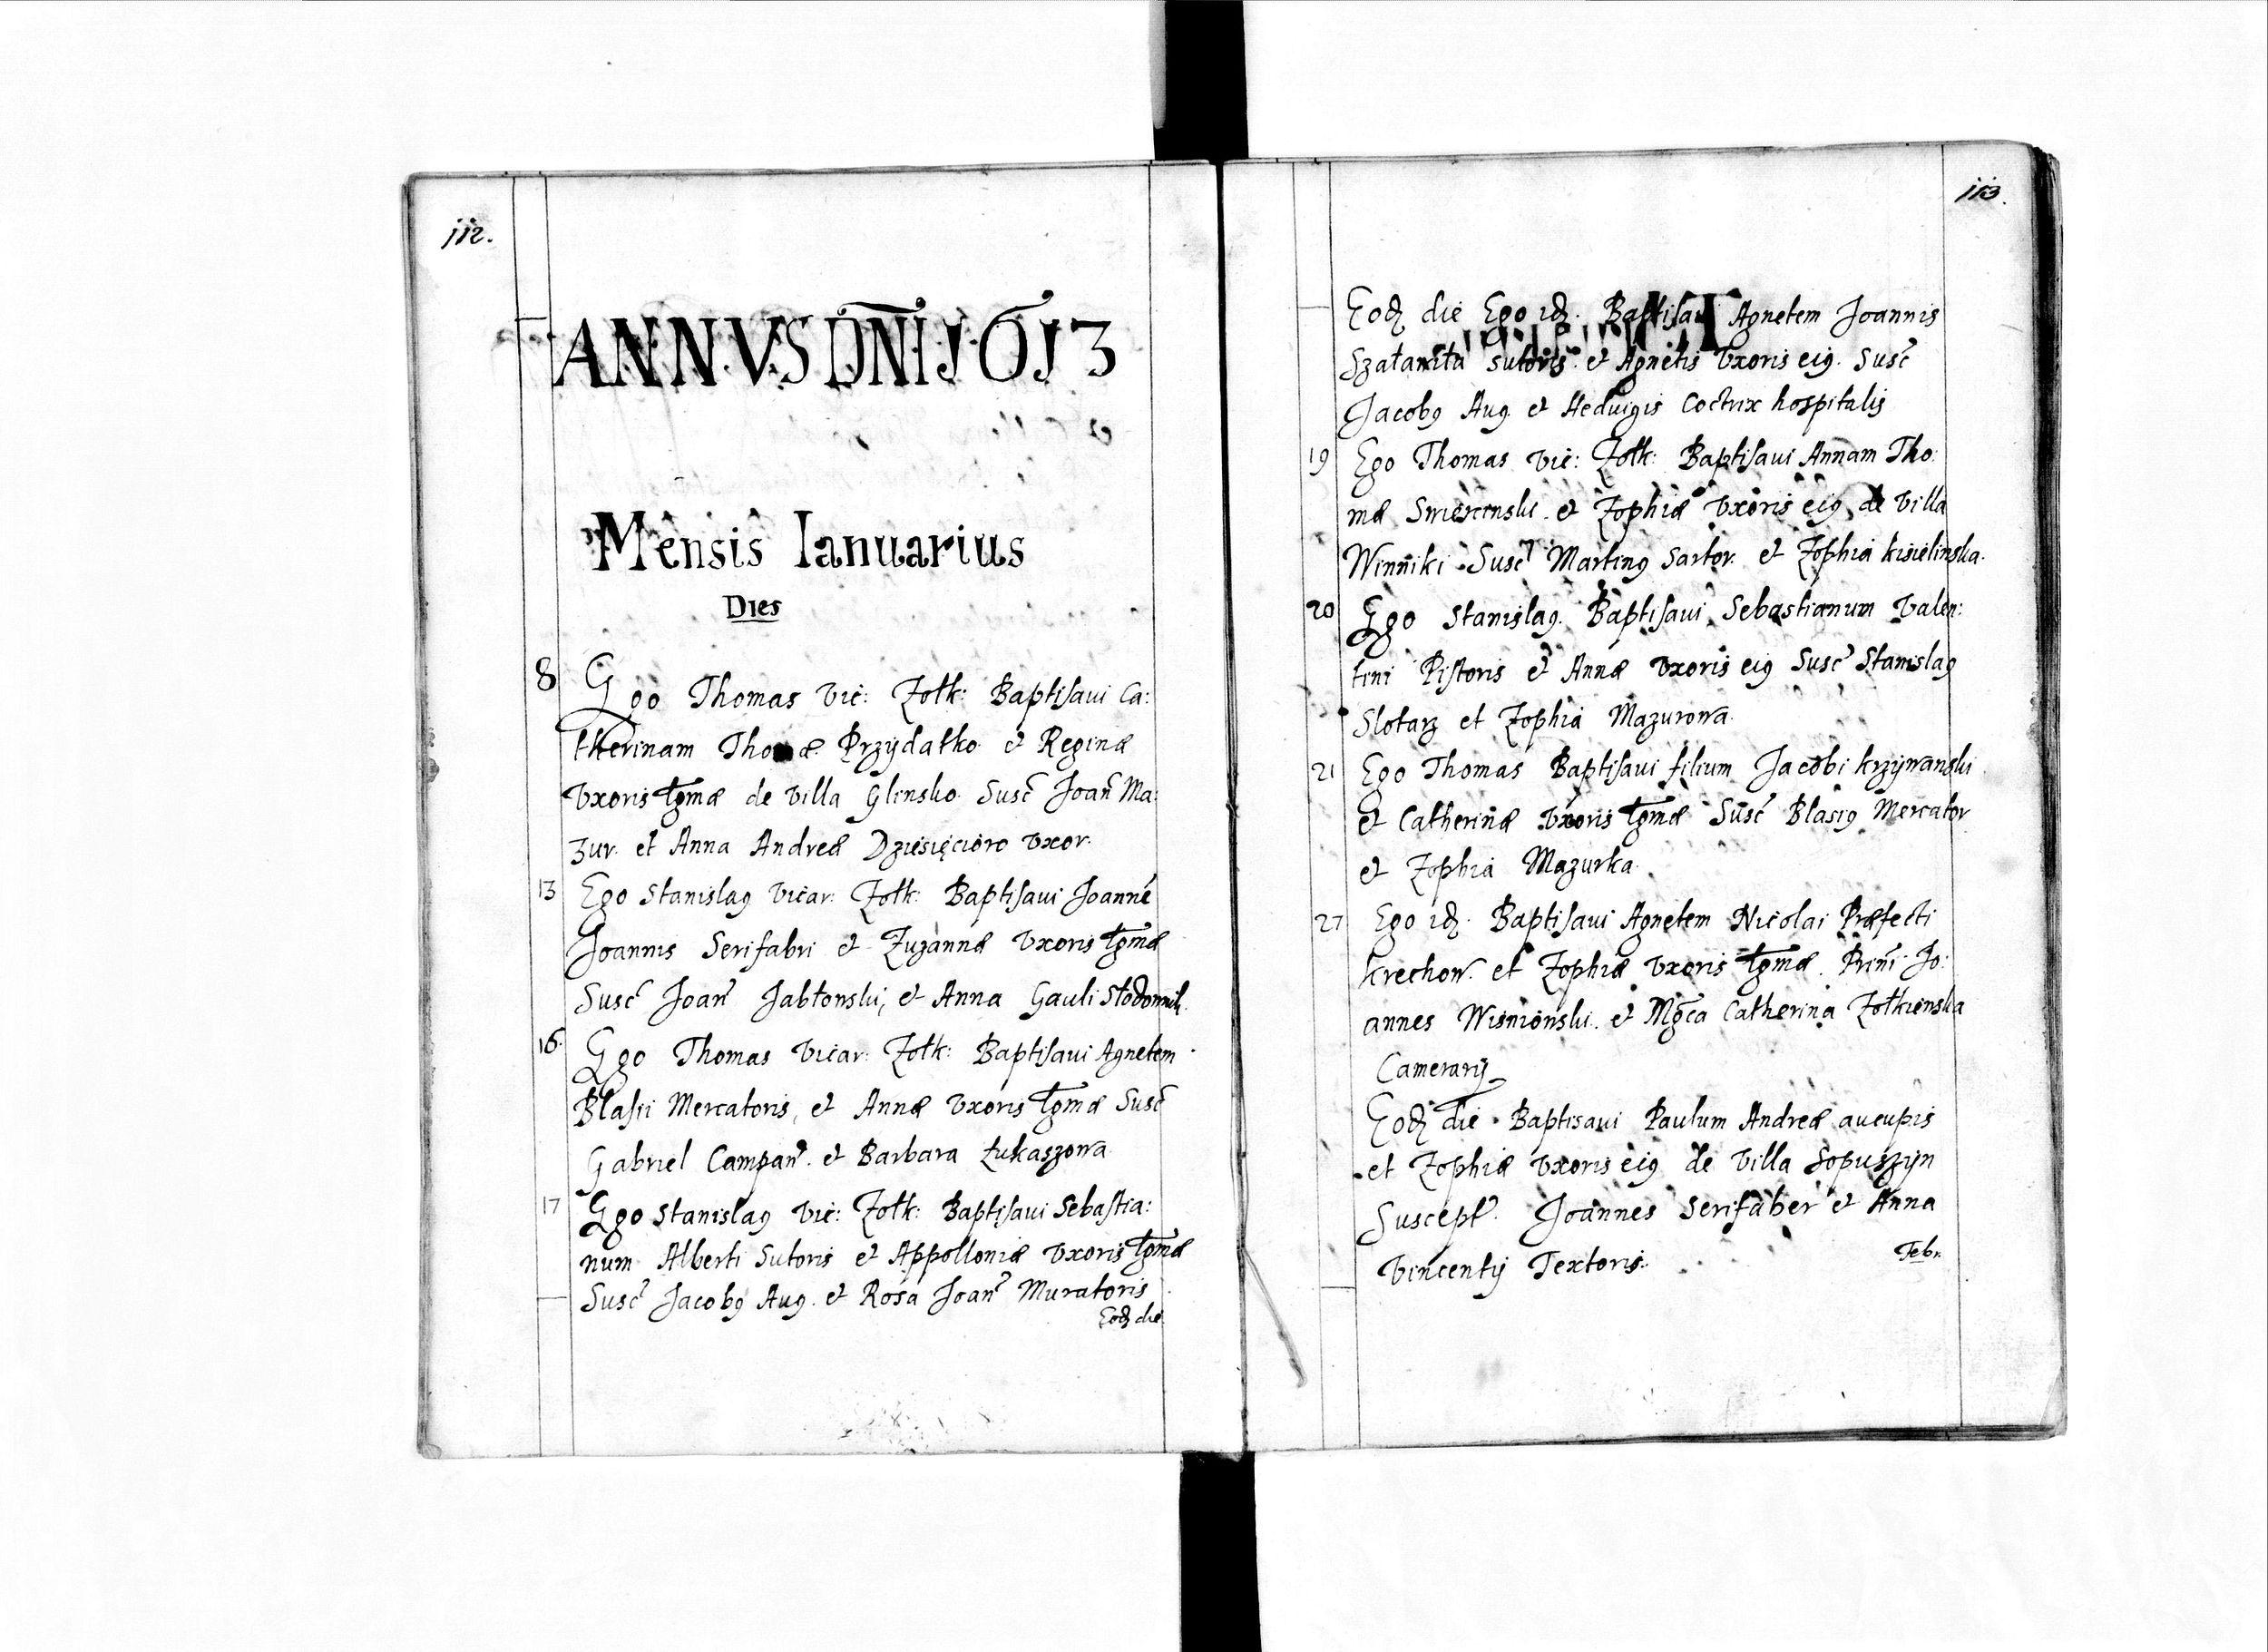 112.
ANNVS DÑI 1613
Mensis Ianuarius
Dies
8 Ego Thomas Vic: Zołk: Baptisaui Ca:
therinam Thomæ Przydatko et Reginæ
Vxoris lgmæ de Villa Glinsko Susc Joan Ma:
zur. et Anna Andreæ Dziesięcioro Vxor.
13 Ego Stanislaꝰ Vicar: Zołk: Baptisaui Joannē
Joannis Serifabri et Zuzannæ Vxoris lgmæ
Susc Joan Jabłonski, et Anna Gauli
16. Ego Thomas Vicar: Zołk: Baptisaui Agnetem
Blasii Mercatoris, et Annæ Vxoris lgmæ Susc
Gabriel Campan. et Barbara Łukaszowa
17 Ego Stanislaꝰ Vic: Zołk: Baptisaui Sebastia:
num Alberti Sutoris et Appolloniæ Vxoris lgmæ
Susc Jacobꝰ Aug. et Rosa Joan Muratoris
Eodꝫ die
113.
Eodꝫ die Ego idꝫ. Baptisaui Agnetem Joannis
Sutoris et Agnetis Vxoris eiꝰ. Susc
Jacobꝰ Aug. et Heduigis Coctrix hospitalis
19 Ego Thomas Vic: Zołk: Baptisaui Annam Tho:
mæ et Zophiæ Vxoris eiꝰ de Villa
Winniki Susc Martinꝰ Sartor. et Zophia kisielinska.
20 Ego Stanislaꝰ. Baptisaui Sebastianum Valen:
tini Pistoris et Annæ Vxoris eiꝰ Susc Stanislaꝰ
Slotarz et Zophia Mazurowa.
21 Ego Thomas Baptisaui filium Jacobi krzywanski
et Catherinæ Vxoris lgmæ Susc Blasiꝰ Mercator
et Zophia Mazurka.
27 Ego idꝫ. Baptisaui Agnetem Nicolai Præfecti
krechow. et Zophiæ Vxoris lgmæ. Jo:
annes Wisnionski. et Mgca Catherina Zołkienska
Camerarij
Eodꝫ die Baptisaui Paulum Andreæ aucupis
et Zophiæ Vxoris eiꝰ de Villa Sopuszyn
Suscept. Joannes Serifaber et Anna
Vincentij Textoris.
Febr.